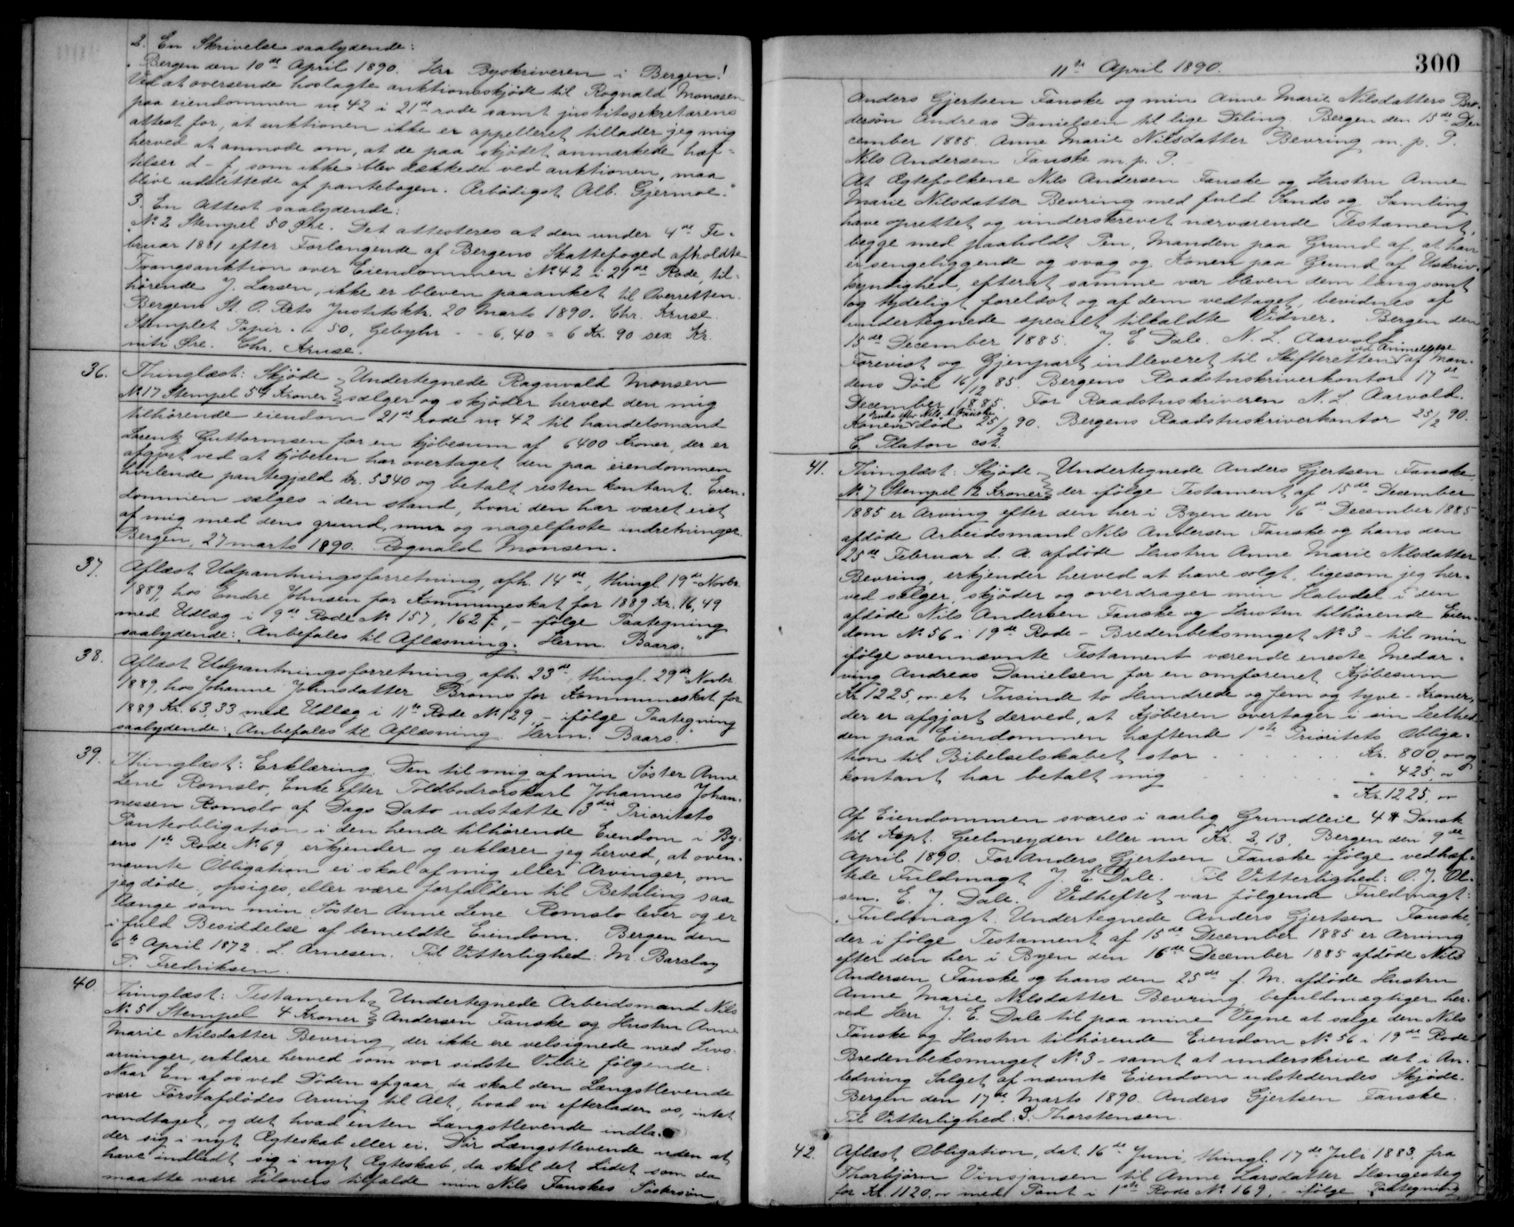 2. En Skrivelse saalydende:
"Bergen den 10de April 1890. Herr Byskriveren i Bergen!
Ved at oversende hoslagte auktionsskjøde til Ragnald Monsen
paa eiendommen no 42 i 21de rode samt justitssekretærens
attest for, at auktionen ikke er appelleret tillader jeg mig
herved at anmode om, at de paa skjødet anmærkede hæf-
telser d-f, som ikke blev dækkede ved auktionen, maa
blive udslettede af pantebogen. Ærbødigst Alb. Gjermoe."
3. En Attest saalydende:
"No 2 Stempel 50 Øre. Det attesteres at den under 4de Fe-
bruar 1881 efter Forlangende af Bergens Skattefoged afholdte
Tvangsauktion over Eiendommen No 42 i 21de Rode, til-
hørende J. Larsen, ikke er bleven paaanket til Overretten.
Bergens St. O. Rets Justitskt. 20 Marts 1890. Chr. Kruse.
Stemplet Papir - " 50, Gebyhr - - 6,40 = 6 Kr. 90 sex Kr.
niti Øre. Chr. Kruse.
36. Thinglæst: Skjøde Undertegnede Ragnvald Monsen
No 17 Stempel 54 Kroner sælger og skjøder herved den mig
tilhørende eiendom 21de rode no 42 til handelsmand
Lorentz Guttormsen for en kjøbesum af 6400 Kroner, der er
afgjort ved at kjøberen har overtaget den paa eiendommen
hvilende pantegjæld kr. 5340 og betalt resten kontant. Eien-
dommen sælges i den stand, hvori den har været eiet
af mig med dens grund, mur og nagelfaste indretninger.
Bergen, 27 marts 1890. Ragnald Monsen.
37. Aflæst Udpantningsforretning, afh. 14de, thingl. 19de Novbr
1889, hos Endre Johnsen for Kommuneskat for 1889 Kr. 16,49
med Udlæg i 9de Rode No 157, 162 f, - ifølge Paategning
saalydende: "Anbefales til Aflæsning. Herm. Baars."
38. Aflæst Udpantningsforretning, afh. 23de, thingl. 29de Novbr
1889, hos Johanne Johnsdatter Broms for Kommuneskat for
1889 Kr. 63,33 med Udlæg i 11te Rode No 129, - ifølge Paategning
saalydende: "Anbefales til Aflæsning. Herm. Baars."
39. Thinglæst: Erklæring. Den til mig af min Søster Anne
Lene Romslo, Enke efter Toldbodrorskarl Johannes Johan-
nessen Romslo af Dags Dato udstætte 3die Prioritets
Panteobligation i den hende tilhørende Eiendom i By-
ens 1ste Rode No 69 erkjender og erklærer jeg herved, at oven-
nævnte Obligation ei skal af mig eller Arvinger, om
jeg døde, opsiges, eller være forfalden til Betaling saa
længe som min Søster Anne Lene Romslo lever og er
i fuld Besiddelse af bemeldte Eiendom. Bergen den
6te April 1872. L. Arnesen. Til Vitterlighed: M. Barclay
P. Fredriksen.
40. Thinglæst: Testament Undertegnede Arbeidsmand Nils
No 5 Stempel 4 Kroner Andersen Fanske og Hustru Anne
Marie Nilsdatter Bevring, der ikke ere velsignede med Livs-
arvinger, erklære herved som vor sidste Villie følgende:
Naar En af os ved Døden afgaar, da skal den Længstlevende
være Førstafdødes Arving til Alt, hvad vi efterlader os, intet
undtaget, og det hvad enten Længstlevende indla-
der sig i nyt Ægteskab eller ei. Dør Længstlevende uden at
have indladt sig i nyt Ægteskab, da skal det Lidet som da
maatte være tilovers tilfalde min Nils Fanskes Søstersøn
11te April 1890. 300
Anders Gjertsen Fanske og min Anne Marie Nilsdatters Bro-
dersøn Andreas Danielsen til lige Deling. Bergen den 15de De-
cember 1885. Anne Marie Nilsdatter Bevring m. p. P.
Nils Andersen Fanske m. p. P.
At Ægtefolkene Nils Andersen Fanske og Hustru Anne
Marie Nilsdatter Bevring med fuld Sands og Samling
have oprettet og underskrevet nærværende Testament,
begge med paaholdt Pen, Manden paa Grund af at han
er sengeliggende og svag og Konen paa Grund af Uskriv-
kyndighed, efterat samme var bleven dem langsomt
og tydeligt forelæst og af dem vedtaget, bevidnes af
undertegnede specielt tilkaldte Vidner. Bergen den
15de December 1885. J. E. Dale. N. L. Aarvold.
Forevist og Gjenpart indleveret til Skifteretten ved Anmeldelse af Man-
dens Død 16/12 85. Bergens Raadstuskriverkontor 17de
December 1885. For Raadstuskriveren N. L. Aarvold.
Konen Enke efter Nils A Fanske død 25/2 90. Bergens Raadstuskriverkontor 25/2 90.
C. Platon cst.
41. Thinglæst: Skjøde Undertegnede Anders Gjertsen Fanske,
No 7 Stempel 12 Kroner der ifølge Testament af 15de December
1885 er Arving efter den her i Byen den 16de December 1885
afdøde Arbeidsmand Nils Andersen Fanske og hans den
25de Februar d. A. afdøde Hustru Anne Marie Nilsdatter
Bevring, erkjender herved at have solgt, ligesom jeg her-
ved sælger, skjøder og overdrager min Halvdel i den
afdøde Nils Andersen Fanske og Hustru tilhørende Eien-
dom No 56 i 19de Rode - Bredenbeksmuget No 3 - til min
ifølge ovennævnte Testament værende eneste Medar-
ving Andreas Danielsen for en omforenet Kjøbesum
Kr 1225,00 et Tusinde to Hundrede og fem og tyve - Kroner,
der er afgjort derved, at Kjøberen overtager i sin Heelhed
den paa Eiendommen hæftende 1ste Prioritets Obliga-
tion til Bibelselskabet stor . . . . Kr. 800,00 og
kontant har betalt mig " 425,00
Kr. 1225,00
Af Eiendommen svares i aarlig Grundleie 4 # Dansk
til Kapt. Geelmeyden eller nu Kr. 2,13. Bergen den 9de
April 1890. For Anders Gjertsen Fanske ifølge vedhæf-
tede Fuldmagt J. E. Dale. Til Vitterlighed: O. J. Ol-
sen. E. J. Dale. Vedheftet var følgende Fuldmagt:
"Fuldmagt. Undertegnede Anders Gjertsen Fanske,
der i følge Testament af 15de December 1885 er Arving
efter den her i Byen den 16de December 1885 afdøde Nils
Andersen Fanske og hans den 25de f. M. afdøde Hustru
Anne Marie Nilsdatter Bevring, befuldmægtiger her-
ved Herr J. E. Dale til paa mine Vegne at sælge den Nils
Fanske og Hustru tilhørende Eiendom No 56 i 19de Rode
Bredenbeksmuget No 3 - samt at underskrive det i An-
ledning Salget af nævnte Eiendom udstedendes Skjøde.
Bergen den 17de Marts 1890. Anders Gjertsen Fanske.
Til Vitterlighed: S. Thorstensen.
42. Aflæst Obligation, dat. 16de Juni, thingl. 17de Juli 1883, fra
Thorbjørn Vinsjansen til Anne Larsdatter Hængesteg
for Kr. 1120,00 med Pant i 1ste Rode No 169, - ifølge Paategning